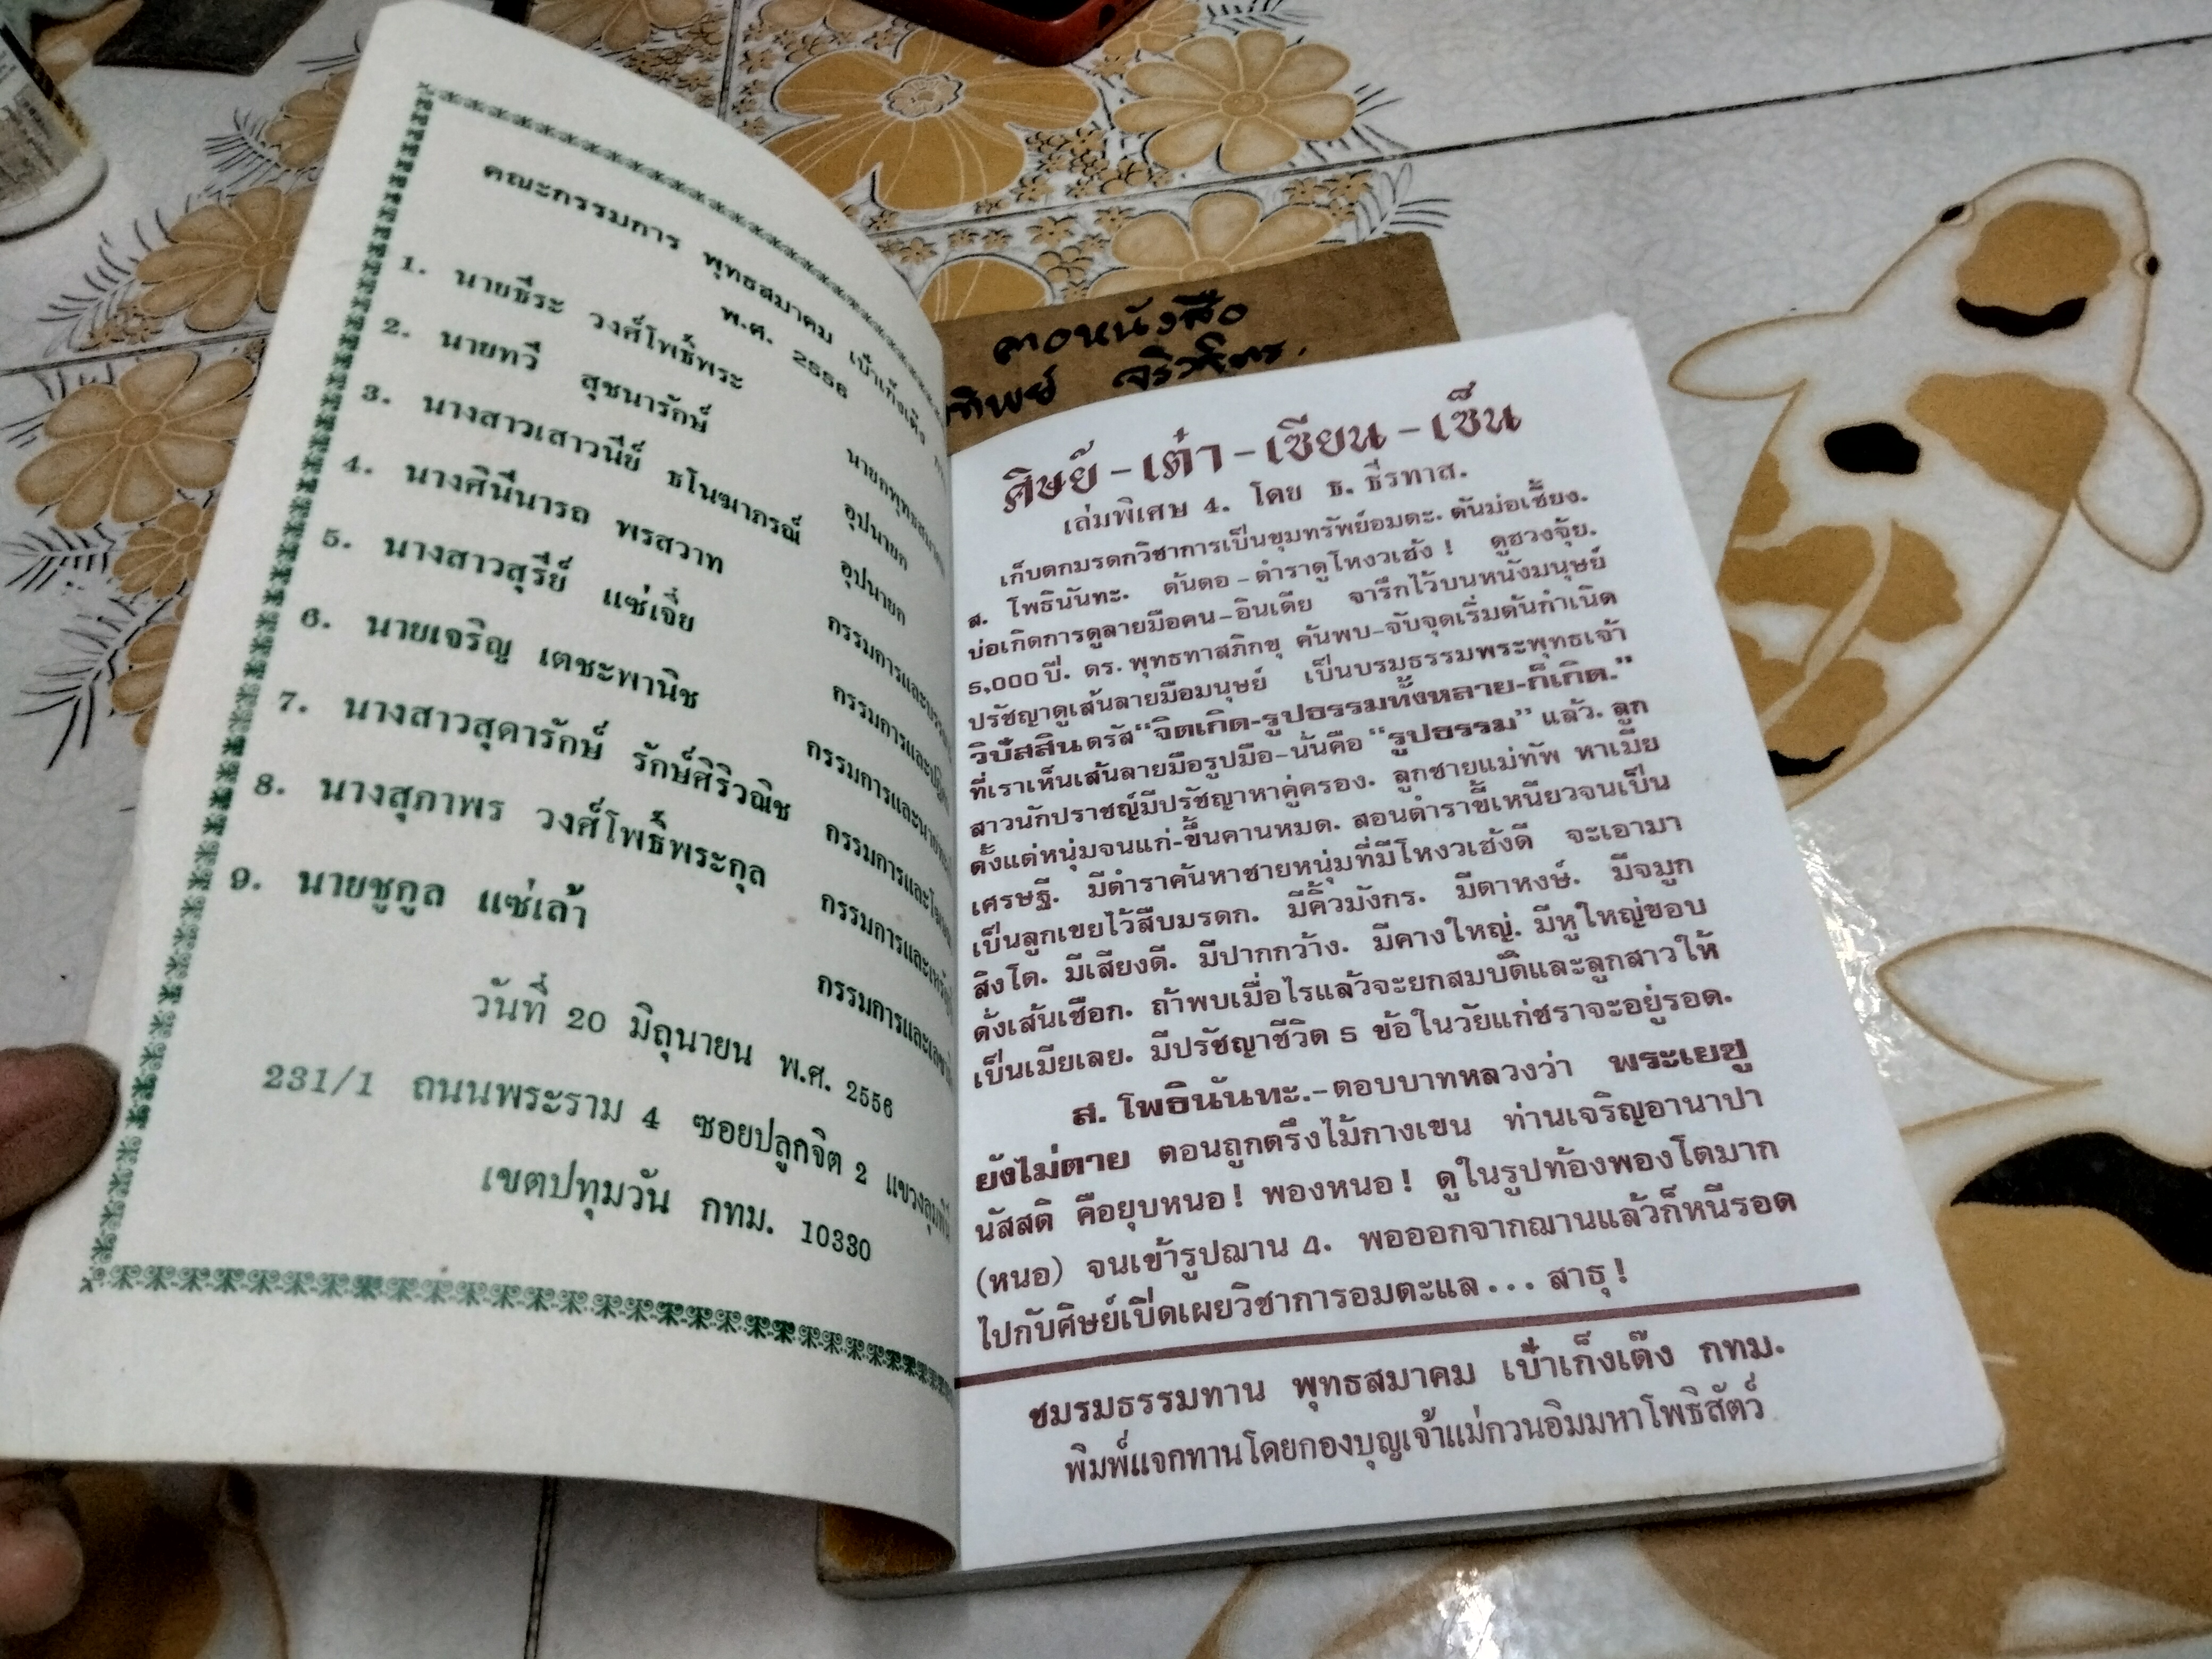 คณะกรรมการ พุทธสมาคม เป้าเก็งเต็ง
พ.ศ. 2556
1. นายธีระ วงศ์โพธิ์พระ นายกพุทธสมาคม
2. นายทวี สุชนารักษ์ อุปนายก
3. นางสาวเสาวนีย์ ธโนฆาภรณ์ อุปนายก
4. นางศินีนารถ พรสวาท กรรมการและ
5. นางสาวสุรีย์ แซ่เจี่ย กรรมการและ
6. นายเจริญ เตชะพานิช กรรมการและ
7. นางสาวสุดารักษ์ รักษ์ศิริวณิช กรรมการและ
8. นางสุภาพร วงศ์โพธิ์พระกุล กรรมการและ
9. นายชูกูล แซ่เล้า กรรมการและ
วันที่ 20 มิถุนายน พ.ศ. 2556
231/1 ถนนพระราม 4 ซอยปลูกจิต 2 แขวงลุมพินี
เขตปทุมวัน กทม. 10330
คอหนังสือ
ทิพย์
ศิษย์-เต๋า-เซียน-เซ็น
เล่มพิเศษ 4. โดย ธ. ธีรทาส.
เก็บตกมรดกวิชาการเป็นขุมทรัพย์อมตะ. ตันม่อเซี้ยง.
ส. โพธินันทะ. ต้นตอ-ตำราดูโหงวเฮ้ง! ดูฮวงจุ้ย.
บ่อเกิดการดูลายมือคน-อินเดีย จารึกไว้บนหนังมนุษย์
5,000 ปี. ดร. พุทธทาสภิกขุ ค้นพบ-จับจุดเริ่มต้นกำเนิด
ปรัชญาดูเส้นลายมือมนุษย์ เป็นบรมธรรมพระพุทธเจ้า
วิปัสสินตรัส“จิตเกิด-รูปธรรมทั้งหลาย-ก็เกิด.”
ที่เราเห็นเส้นลายมือรูปมือ-นั่นคือ “รูปธรรม” แล้ว. ลูก
สาวนักปราชญ์มีปรัชญาหาคู่ครอง. ลูกชายแม่ทัพ หาเมีย
ตั้งแต่หนุ่มจนแก่-ขึ้นคานหมด. สอนตำราขี้เหนียวจนเป็น
เศรษฐี. มีตำราค้นหาชายหนุ่มที่มีโหงวเฮ้งดี จะเอามา
เป็นลูกเขยไว้สืบมรดก. มีคิ้วมังกร. มีตาหงษ์. มีจมูก
สิงโต. มีเสียงดี. มีปากกว้าง. มีคางใหญ่. มีหูใหญ่ขอบ
ดั่งเส้นเชือก. ถ้าพบเมื่อไรแล้วจะยกสมบัติและลูกสาวให้
เป็นเมียเลย. มีปรัชญาชีวิต 5 ข้อในวัยแก่ชราจะอยู่รอด.
ส. โพธินันทะ.-ตอบบาทหลวงว่า พระเยซู
ยังไม่ตาย ตอนถูกตรึงไม้กางเขน ท่านเจริญอานาปา
นัสสติ คือยุบหนอ! พองหนอ! ดูในรูปท้องพองโตมาก
(หนอ) จนเข้ารูปฌาน 4. พอออกจากฌานแล้วก็หนีรอด
ไปกับศิษย์เปิดเผยวิชาการอมตะแล... สาธุ!
ชมรมธรรมทาน พุทธสมาคม เป้าเก็งเต๊ง กทม.
พิมพ์แจกทานโดยกองบุญเจ้าแม่กวนอิมมหาโพธิสัตว์